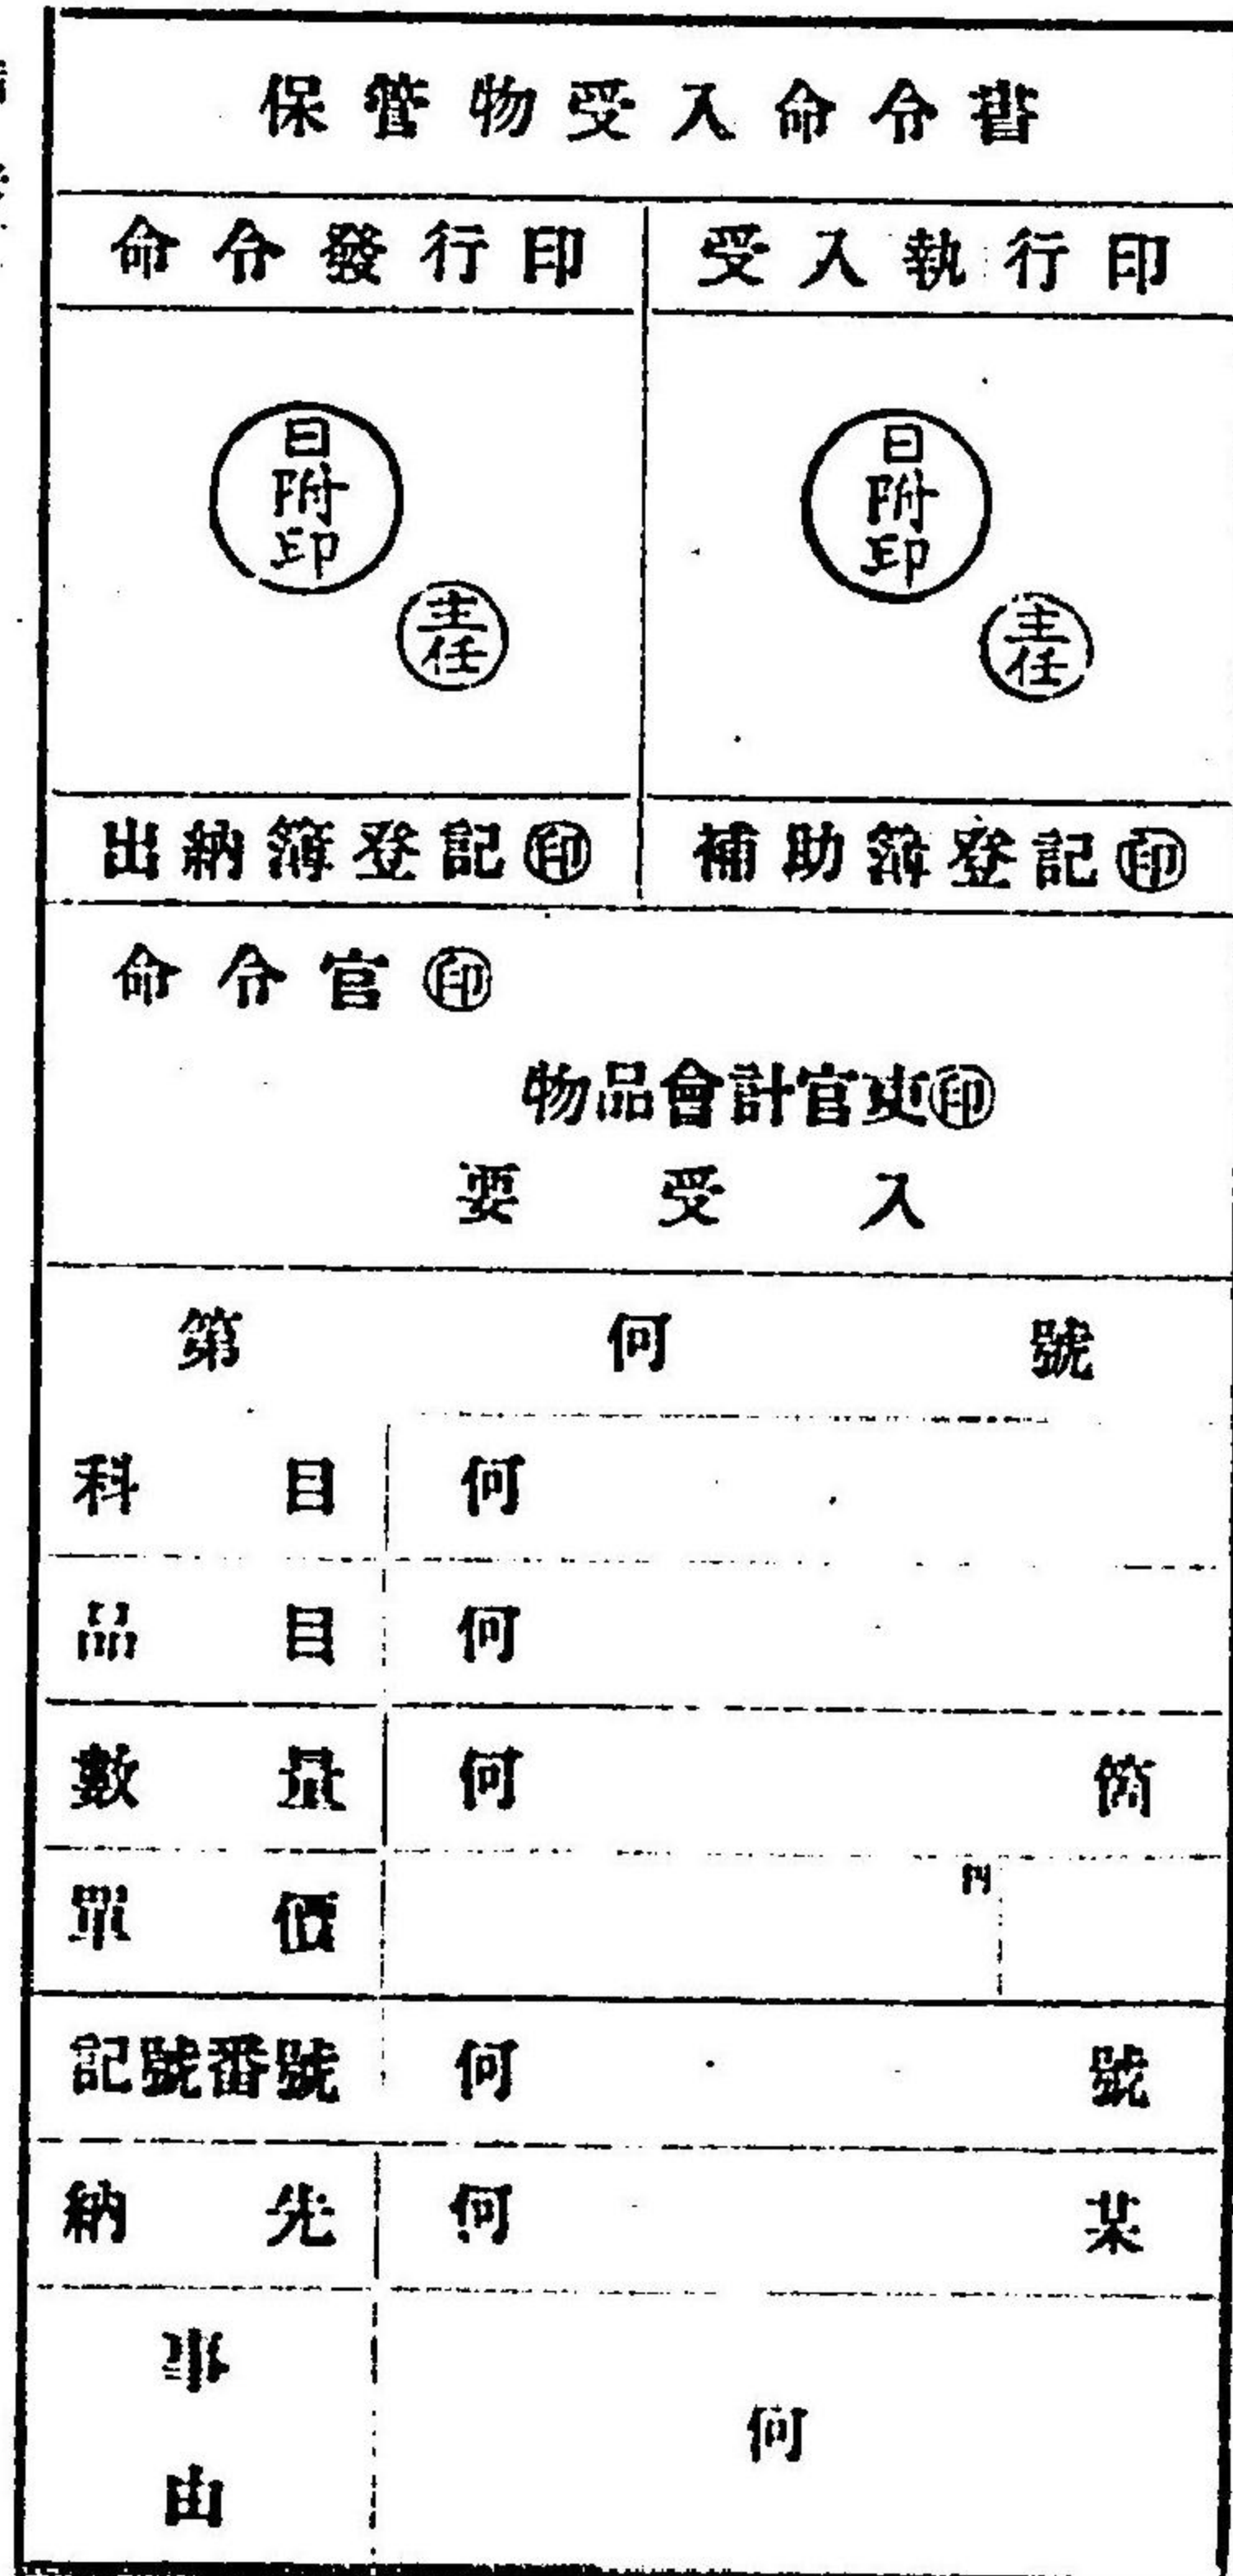 保管物受入命令書
命令發行印 受入執行印
日附印 主任 日附印 主任
出納簿登記㊞ 補助簿登記㊞
命令官㊞
物品會計官吏㊞
要受入
第何號
科目 何
品目 何
數量 何 箇
單價 円
記號番號 何 號
納先 何 某
事由 何